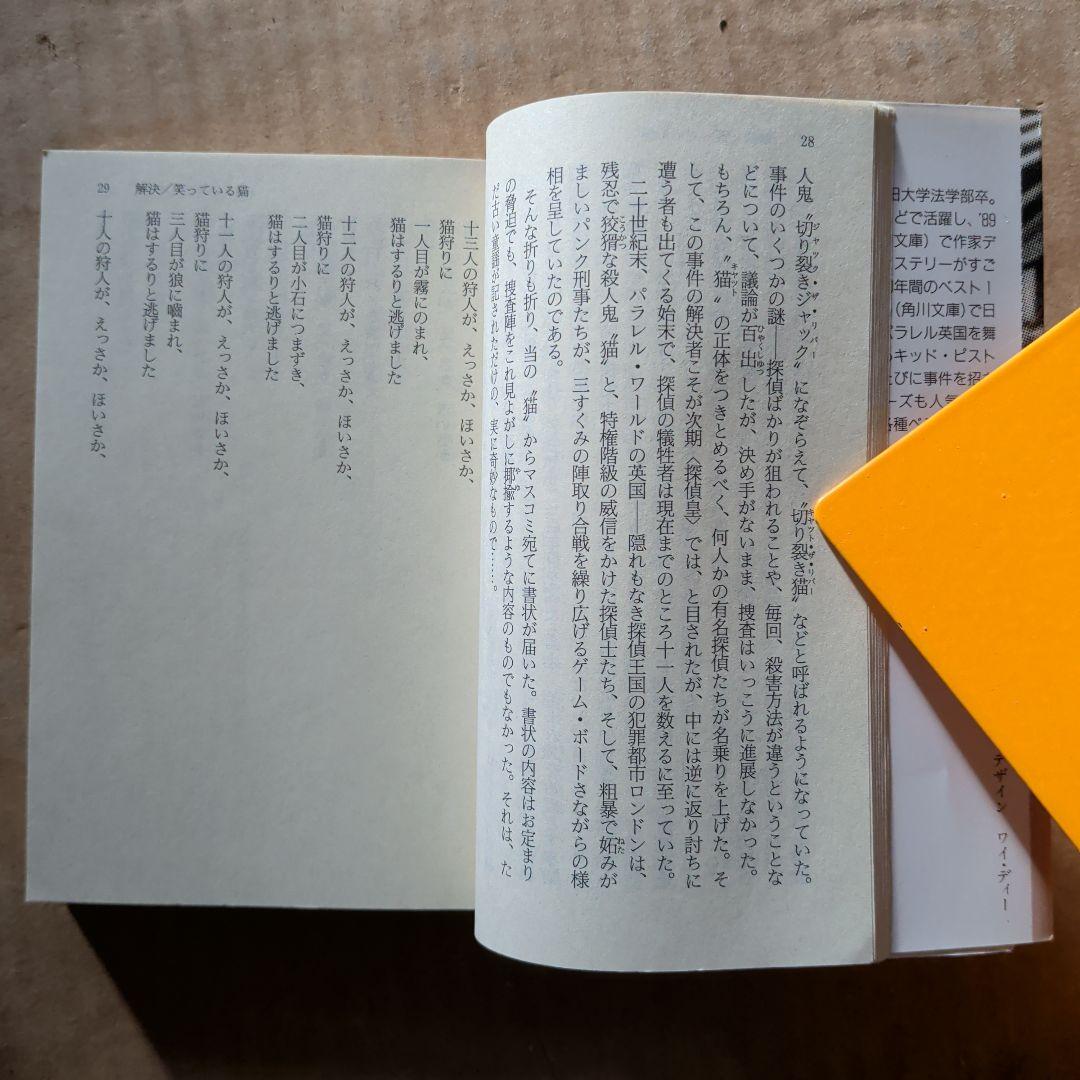 28
人鬼〝切り裂きジャック〟になぞらえて、〝切り裂き猫〟などと呼ばれるようになっていた。
ジャック・ザ・リパー
キャット・ザ・リパー
事件のいくつかの謎——探偵ばかりが狙われることや、毎回、殺害方法が違うということな
どについて、議論が百出したが、決め手がないまま、捜査はいっこうに進展しなかった。
ひやくしゆつ
もちろん、〝猫〟の正体をつきとめるべく、何人かの有名探偵たちが名乗りを上げた。そ
キャット
して、この事件の解決者こそが次期〈探偵皇〉では、と目されたが、中には逆に返り討ちに
遭う者も出てくる始末で、探偵の犠牲者は現在までのところ十一人を数えるに至っていた。
二十世紀末、パラレル・ワールドの英国——隠れもなき探偵王国の犯罪都市ロンドンは、
残忍で狡猾な殺人鬼〝猫〟と、特権階級の威信をかけた探偵士たち、そして、粗暴で妬みが
こうかつ
ねた
ましいパンク刑事たちが、三すくみの陣取り合戦を繰り広げるゲーム・ボードさながらの様
相を呈していたのである。
そんな折りも折り、当の〝猫〟からマスコミ宛てに書状が届いた。書状の内容はお定まり
の脅迫でも、捜査陣をこれ見よがしに揶揄するような内容のものでもなかった。それは、た
やゆ
だ古い童謡が記されただけの、実に奇妙なもので……。
29 解決／笑っている猫
十三人の狩人が、えっさか、ほいさか、
猫狩りに
一人目が霧にのまれ、
猫はするりと逃げました
十二人の狩人が、えっさか、ほいさか、
猫狩りに
二人目が小石につまずき、
猫はするりと逃げました
十一人の狩人が、えっさか、ほいさか、
猫狩りに
三人目が狼に嚙まれ、
猫はするりと逃げました
十人の狩人が、えっさか、ほいさか、
田大学法学部卒。
どで活躍し、'89
文庫）で作家デ
ステリーがすご
年間のベスト1
（角川文庫）で日
パラレル英国を舞
キッド・ピスト
たびに事件を招
ーズも人気
各種ベ
デザイン ワイ・ディー